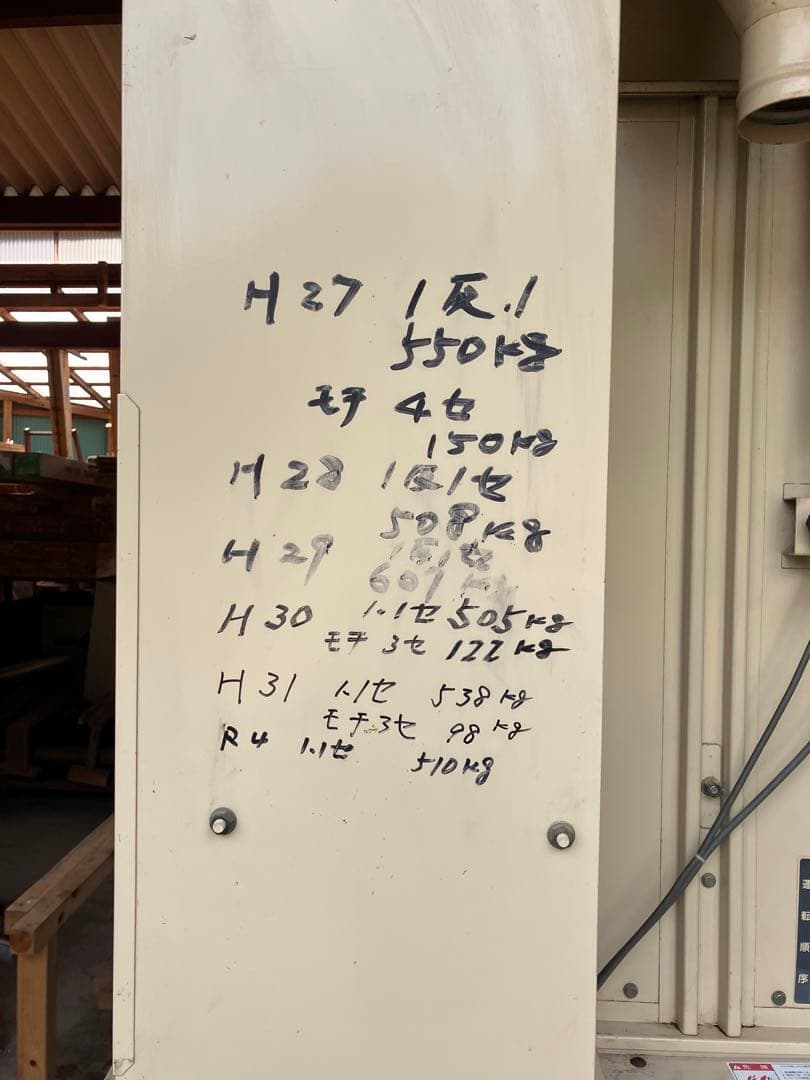 H27 1反.1
550kg
モチ 4セ
150kg
H28 1反1セ
508kg
H29 1反1セ
607kg
H30 1.1セ 505kg
モチ 3セ 122kg
H31 1.1セ 538kg
モチ.3セ 98kg
R4 1.1セ 510kg
運転順序
危険